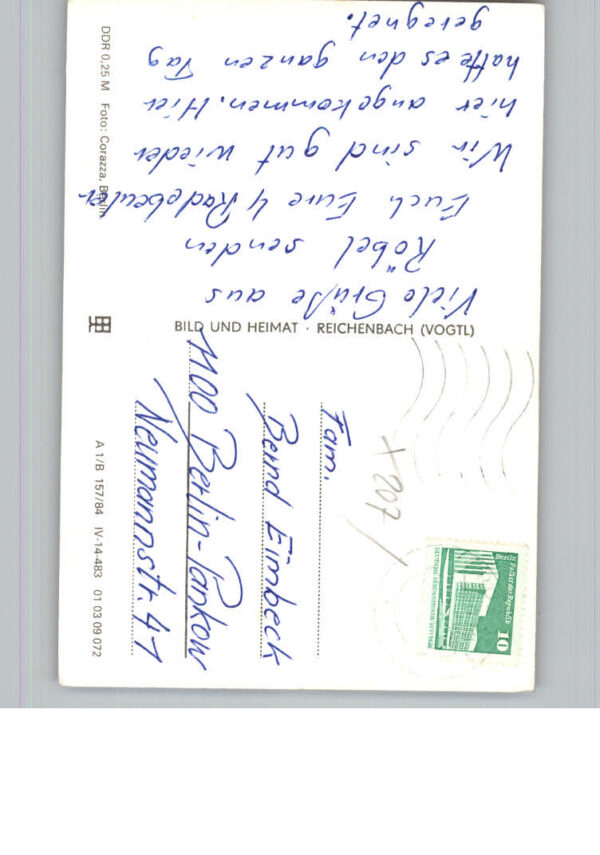 Viele Grüße aus
Röbel senden
Euch Eure 4 Radebeuler
Wir sind gut wieder
hier angekommen. Hier
hatte es den ganzen Tag
geregnet.
DDR 0,25 M Foto: Corazza, Berlin
BILD UND HEIMAT · REICHENBACH (VOGTL)
Fam.
Bernd Eimbeck
1100 Berlin-Pankow
Neumannstr. 41
A 1/B 157/84 IV-14-483 01 03 09 072
207
Berlin
Palast der Republik
10
DEUTSCHE DEMOKRATISCHE REPUBLIK